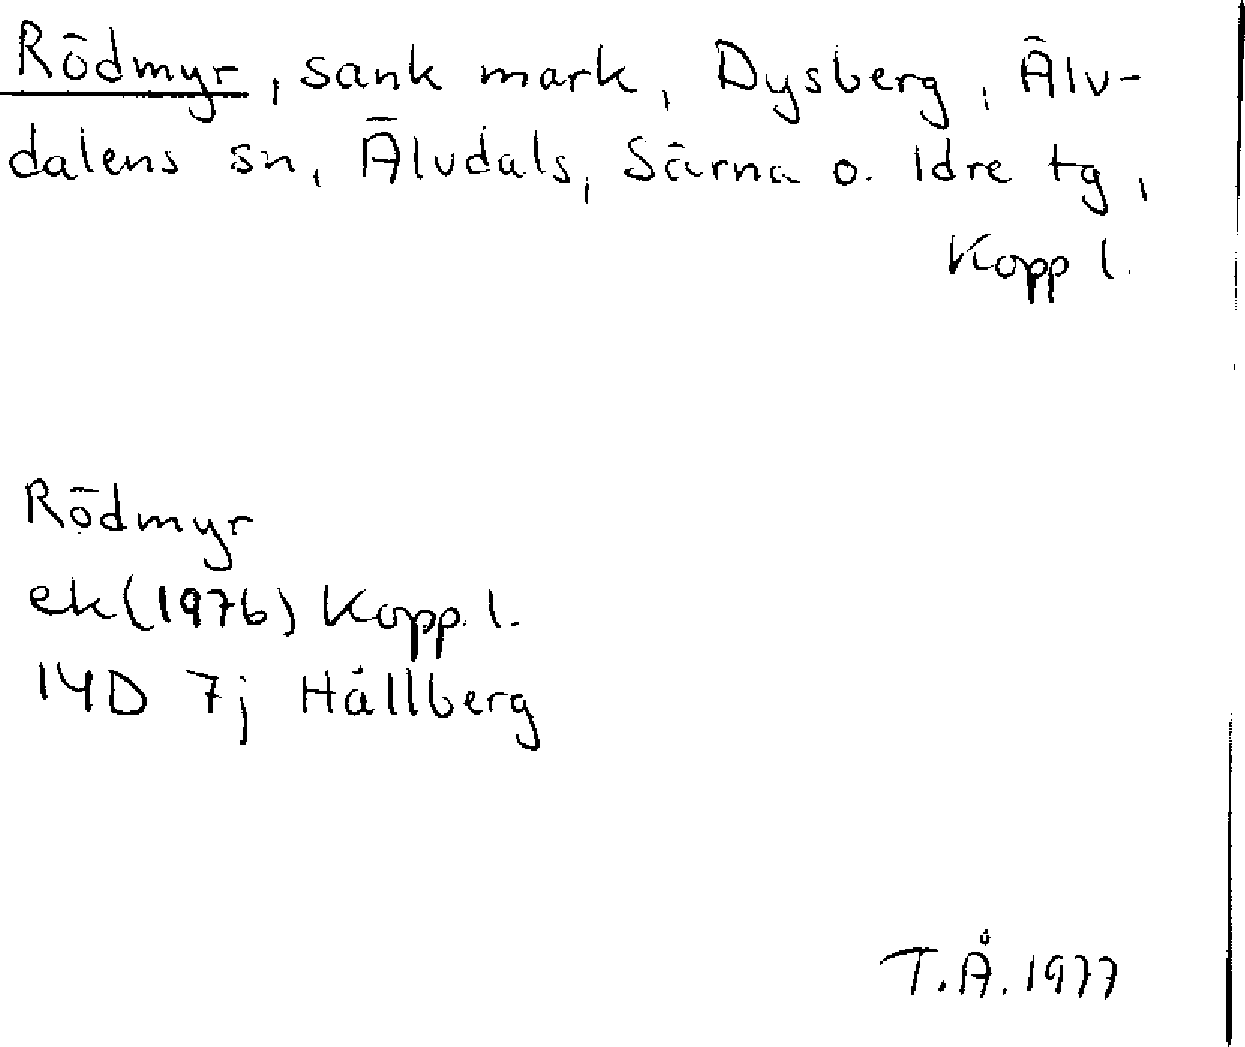 Rödmyr, sank mark, Dysberg, Älv-
dalens sn, Älvdals, Särna o. Idre tg,
Kopp l.
Rödmyr
ek (1976) Kopp. l.
14D 7j Hållberg
T.Å. 1977